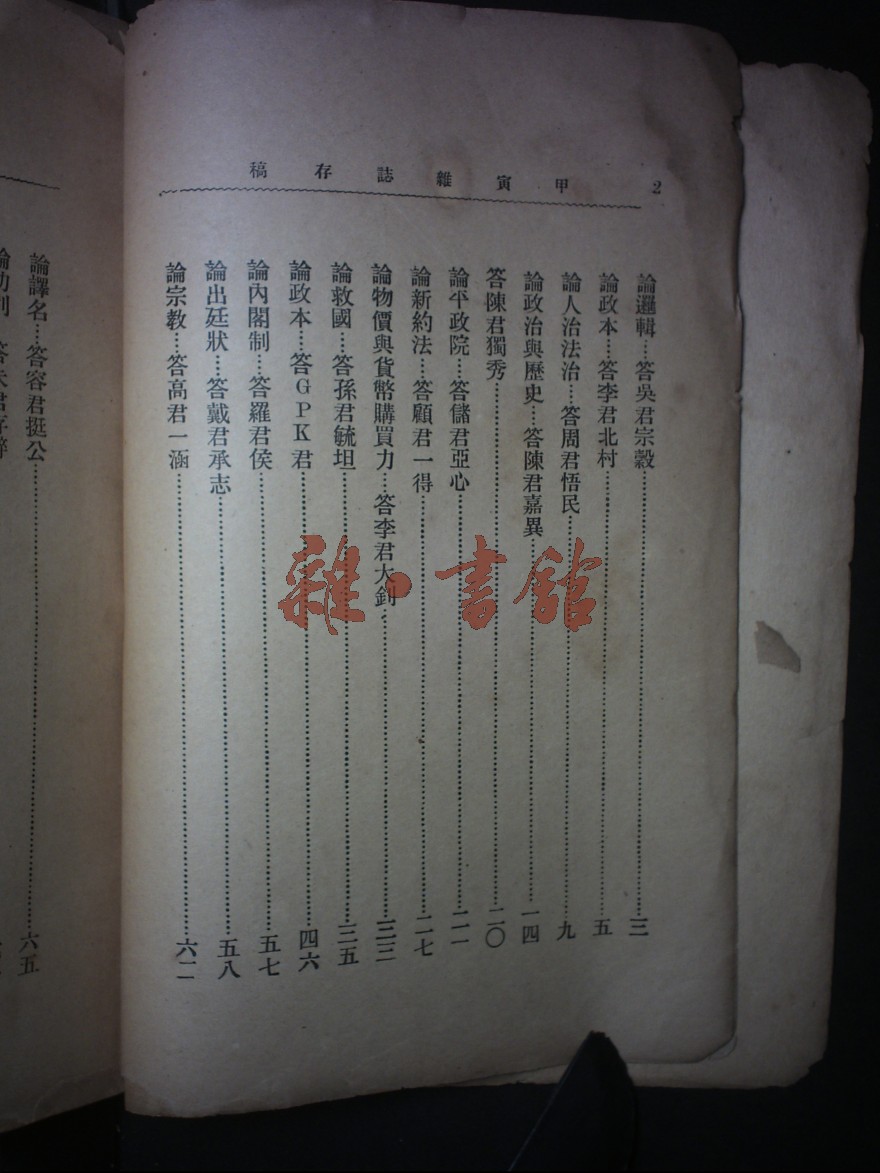 甲寅雜誌存稿 2
論邏輯…答吳君宗穀……三
論政本…答李君北村……五
論人治法治…答周君悟民……九
論政治與歷史…答陳君嘉異……一四
答陳君獨秀……二〇
論平政院…答儲君亞心……二一
論新約法…答顧君一得……二七
論物價與貨幣購買力…答李君大釗……三三
論救國…答孫君毓坦……三五
論政本…答GPK君……四六
論內閣制…答羅君侯……五七
論出廷狀…答戴君承志……五八
論宗教…答高君一涵……六二
論譯名…答容君挺公……六五
雜·書館